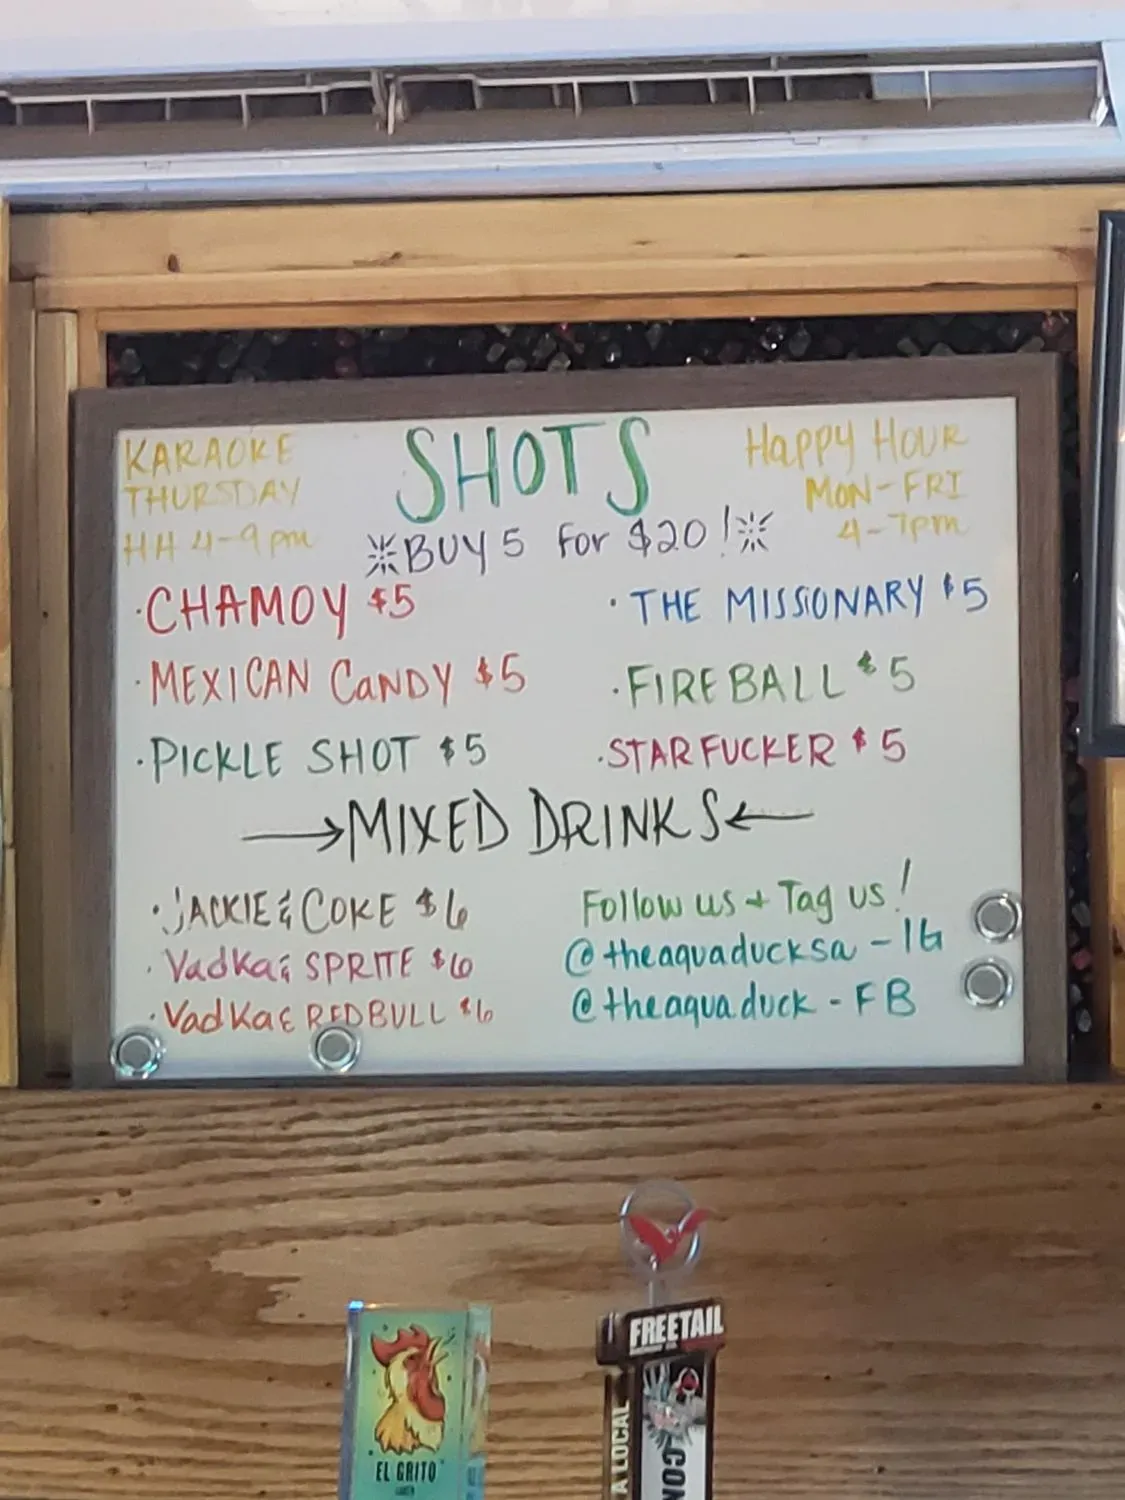 KARAOKE
THURSDAY
HH 4-9pm
SHOTS
BUY 5 for $20!
Happy Hour
MON-FRI
4-7pm
·CHAMOY $5
·MEXICAN CANDY $5
·PICKLE SHOT $5
·THE MISSIONARY $5
·FIREBALL $5
·STARFUCKER $5
→MIXED DRINKS←
·JACKIE & COKE $6
·Vadka & SPRITE $6
·Vadka & REDBULL $6
Follow us + Tag us!
@theaquaducksa - IG
@theaquaduck - FB
EL GRITO
FREETAIL
A LOCAL
CON